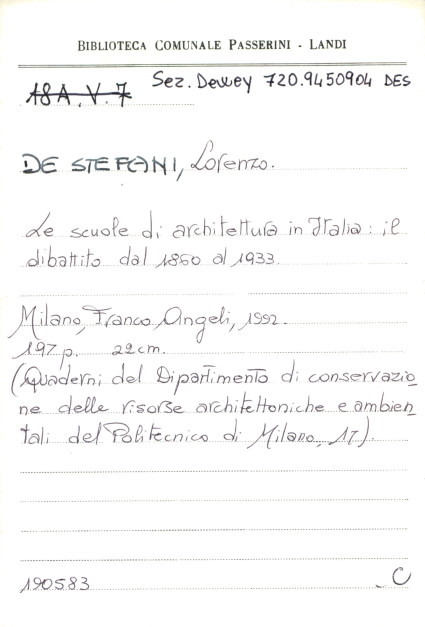 BIBLIOTECA COMUNALE PASSERINI - LANDI
18A.V.7 Sez. Dewey 720.9450904 DES
DE STEFANI, Lorenzo.
Le scuole di architettura in Italia: il
dibattito dal 1860 al 1933.
Milano, Franco Angeli, 1992.
197 p. 22 cm.
(Quaderni del Dipartimento di conservazio_
ne delle risorse architettoniche e ambien_
tali del Politecnico di Milano, 17).
190583 _C